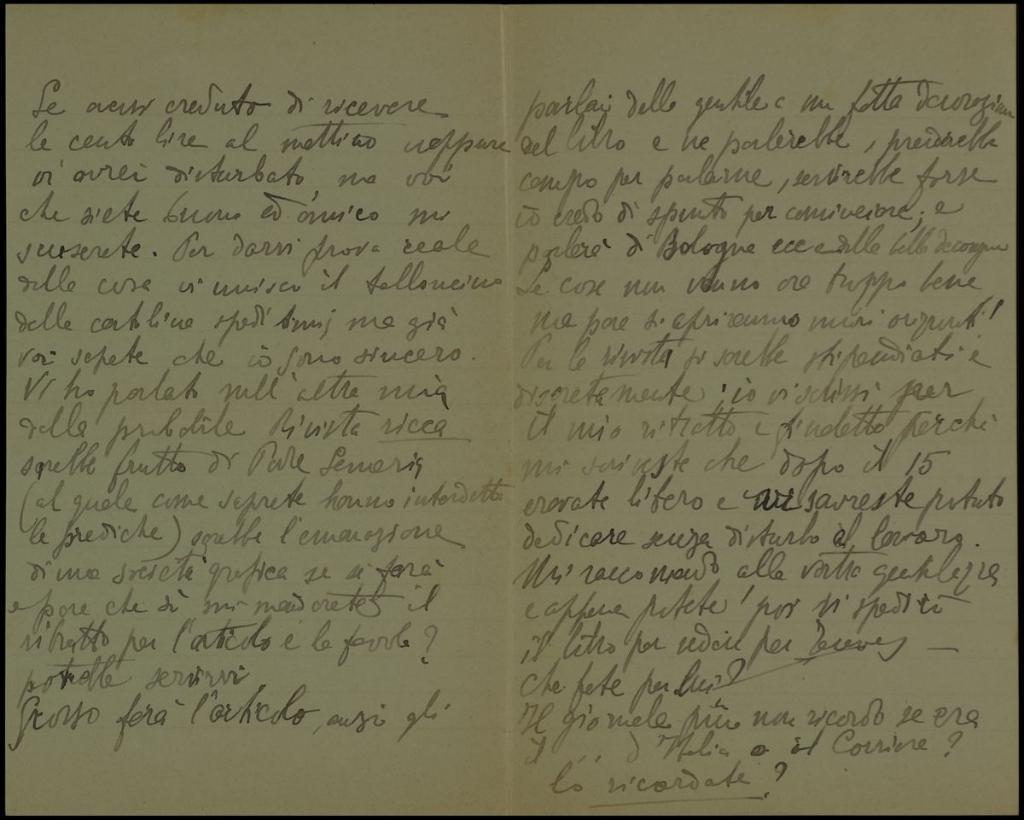 Se avessi creduto di ricevere
le cento lire al mattino neppure
vi avrei disturbato, ma voi
che siete buono ed amico mi
scuserete. Per darvi prova reale
della cosa vi unisco il talloncino
della cartolina ma già
voi sapete che io sono sincero.
Vi ho parlato nell'altra mia
della probabile Rivista ricca
sarebbe frutto di Padre Semeria
(al quale come saprete hanno interdetto
le prediche) sarebbe l'emanazione
di una società grafica se si farà
e pare che sì mi manderete il
ritratto per l'articolo e le favole?
potrebbe servirvi
farà l'articolo, anzi gli
parlai della gentile a me fatta
del libro e ne parlerebbe, prenderebbe
campo per parlarne, servirebbe forse
io credo di spunto per cominciare, e
parlerà di Bologna ecc e della
Le cose non vanno ora troppo bene
ma pare si apriranno nuovi orizzonti!
Per la rivista si sarebbe stipendiati e
discretamente; io vi scrissi per
il mio ritratto e perché
mi scriveste che dopo il 15
eravate libero e vi sareste potuto
dedicare senza disturbo al lavoro.
Mi raccomando alla vostra gentilezza
e appena potete! poi vi spedirò
il libro per per Treves —
che fate per lui?
Il giornale non ricordo se era
il . . . d'Italia o il Corriere?
lo ricordate?